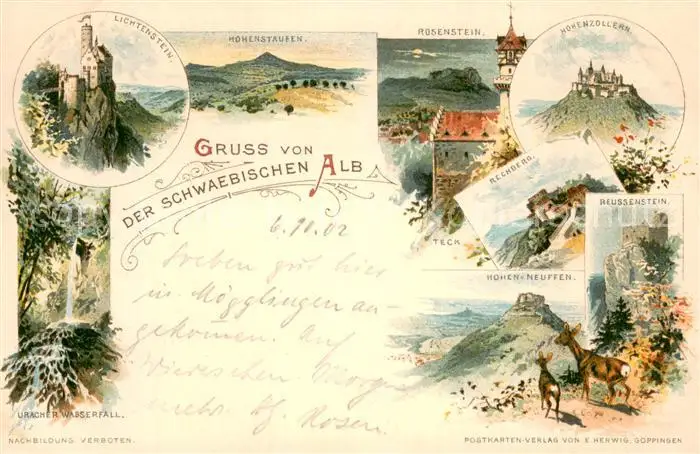 LICHTENSTEIN.
HOHENSTAUFEN.
ROSENSTEIN.
HOHENZOLLERN.
GRUSS VON
DER SCHWAEBISCHEN ALB
RECHBERG.
REUSSENSTEIN.
TECK
HOHEN-NEUFFEN.
6.10.02
Soeben gut hier
in Mögglingen an-
gekommen. Auf
Wiersehen. Morgen
mehr. Hz. Rosen.
URACHER WASSERFALL.
NACHBILDUNG VERBOTEN.
POSTKARTEN-VERLAG VON E. HERWIG, GÖPPINGEN